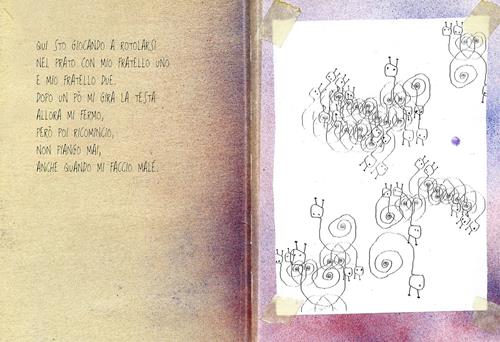 QUI STO GIOCANDO A ROTOLARSI
NEL PRATO CON MIO FRATELLO UNO
E MIO FRATELLO DUE.
DOPO UN PÒ MI GIRA LA TESTA
ALLORA MI FERMO,
PERÒ POI RICOMINCIO,
NON PIANGO MAI,
ANCHE QUANDO MI FACCIO MALE.